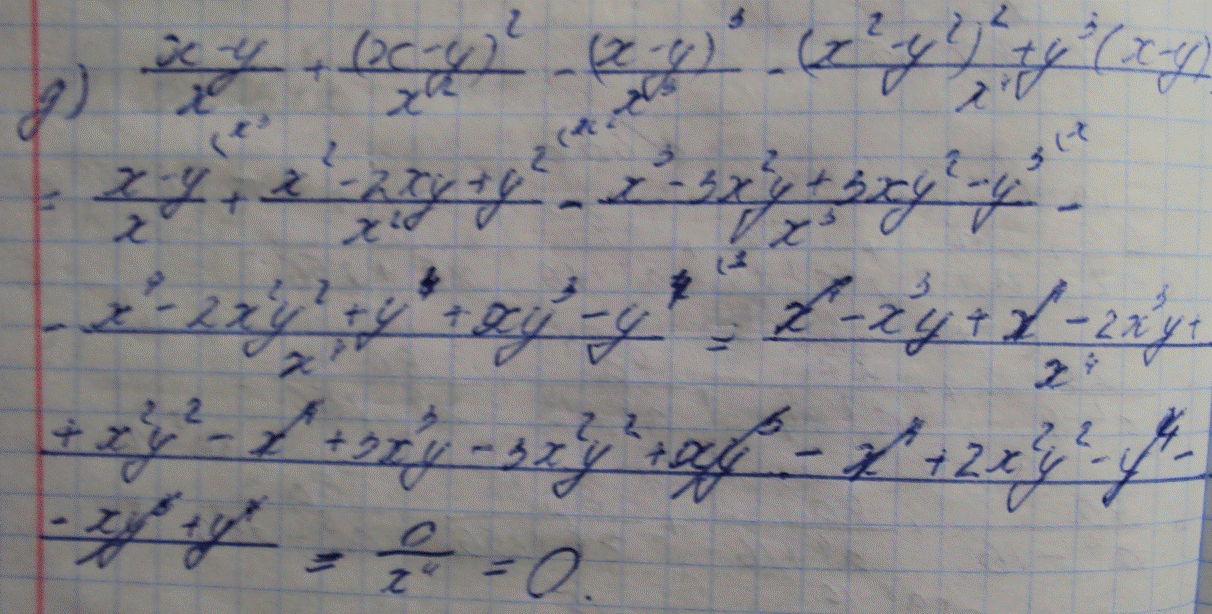 д) (x-y)/x + (x-y)²/x² - (x-y)³/x³ - ((x²-y²)²+y³(x-y))/x⁴
= (x-y)/x (x³ + (x²-2xy+y²)/x² (x² - (x³-3x²y+3xy²-y³)/x³ (x -
- (x⁴-2x²y²+y⁴+xy³-y⁴)/x⁴ = (x⁴-x³y+x⁴-2x³y+
+x²y²-x⁴+3x³y-3x²y²+xy³-x⁴+2x²y²-y⁴-
-xy³+y⁴)/x⁴ = 0/x⁴ = 0.